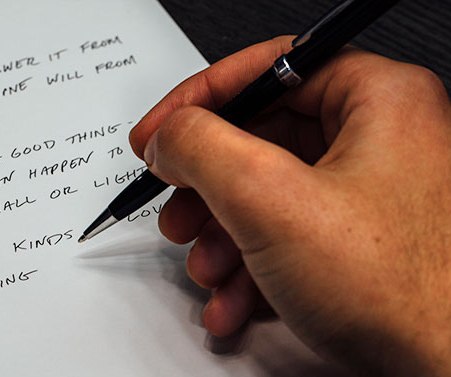 WER IT FROM
NE WILL FROM
GOOD THING -
N HAPPEN TO
ALL OR LIGHT
KINDS LOV
ING